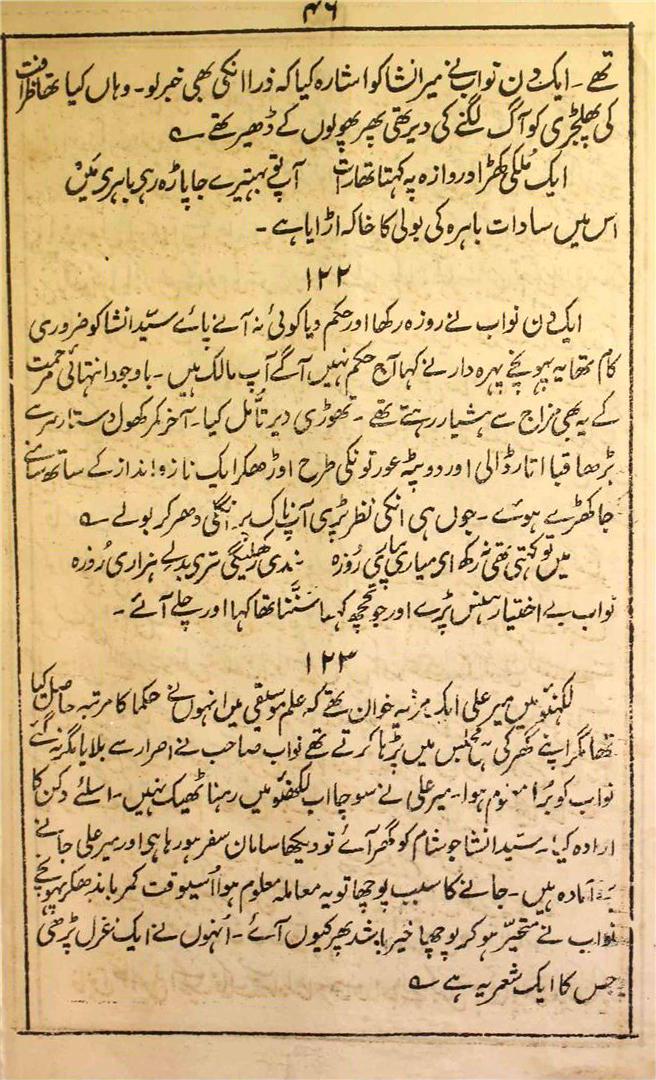 ۴۶
تھے ۔ ایک دن نواب نے میر انشا کو اشارہ کیا کہ ذرا انکی بھی خبر لو ۔ وہاں کیا تھا ظرافت
کی پھلجڑی کو آگ لگنے کی دیر تھی پھر پھولوں کے ڈھیر تھے ؎
ایک ملکی کھڑا دروازہ پہ کہتا تھا رات آپ تے بہتیرے جا پاڑہ رہی باہری میں
اس میں سادات باہرہ کی بولی کا خاکہ اڑایا ہے ۔
۱۲۲
ایک دن نواب نے روزہ رکھا اور حکم دیا کوئی نہ آنے پائے سیّد انشا کو ضروری
کام تھا یہ پہونچے پہرہ دار نے کہا آج حکم نہیں آگے آپ مالک ہیں ۔ باوجود انتہائی مرحمت
کے یہ بھی مزاج سے ہشیار رہتے تھے ۔ تھوڑی دیر تأمل کیا ۔ آخر کمر کھول دستار سر سے
بڑھا قبا اتار ڈالی اور دوپٹہ عورتونکی طرح اوڑھکر ایک ناز و انداز کے ساتھ سامنے
جا کھڑے ہوئے ۔ جوں ہی انکی نظر پڑی آپ ناک پر انگلی دھر کر بولے ؎
میں تو کہتی تھی نہ رکھ ای میاری پیاری روزہ بندی رکھلیگی تری بدلے ہزاری روزہ
نواب بے اختیار ہنس پڑے اور جو کچھ کہنا سننا تھا کہا اور چلے آئے ۔
۱۲۳
لکھنؤ میں میر علی ایک مرثیہ خوان تھے کہ علم موسیقی میں انہوں نے حکما کا مرتبہ حاصل کیا
تھا مگر اپنے گھر کی ہی مجلس میں پڑھا کرتے تھے نواب صاحب نے اصرار سے بلایا مگر نہ گئے
نواب کو برا معلوم ہوا ۔ میر علی نے سوچا اب لکھنؤ میں رہنا ٹھیک نہیں ۔ اسلئے دکن کا
ارادہ کیا ۔ سیّد انشا جو شام کو گھر آئے تو دیکھا سامان سفر ہو رہا ہی اور میر علی جانے
پہ آمادہ ہیں ۔ جانے کا سبب پوچھا تو یہ معاملہ معلوم ہوا اُسیوقت کمر باندھکر پہونچے
نواب نے متحیّر ہو کر پوچھا خیر باشد پھر کیوں آئے ۔ اُنہوں نے ایک غزل پڑھی
جس کا ایک شعر یہ ہے ؎